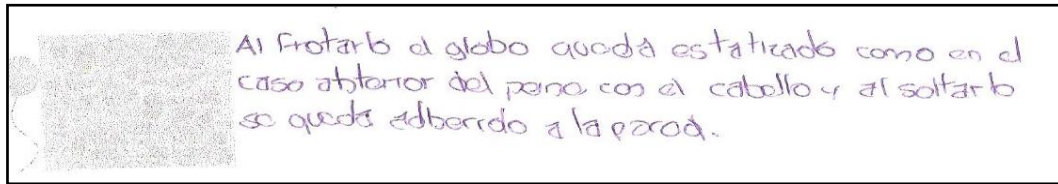 Al frotarlo el globo queda estatizado como en el
caso abterior del peine con el cabello y al soltarlo
se queda adherido a la pared.